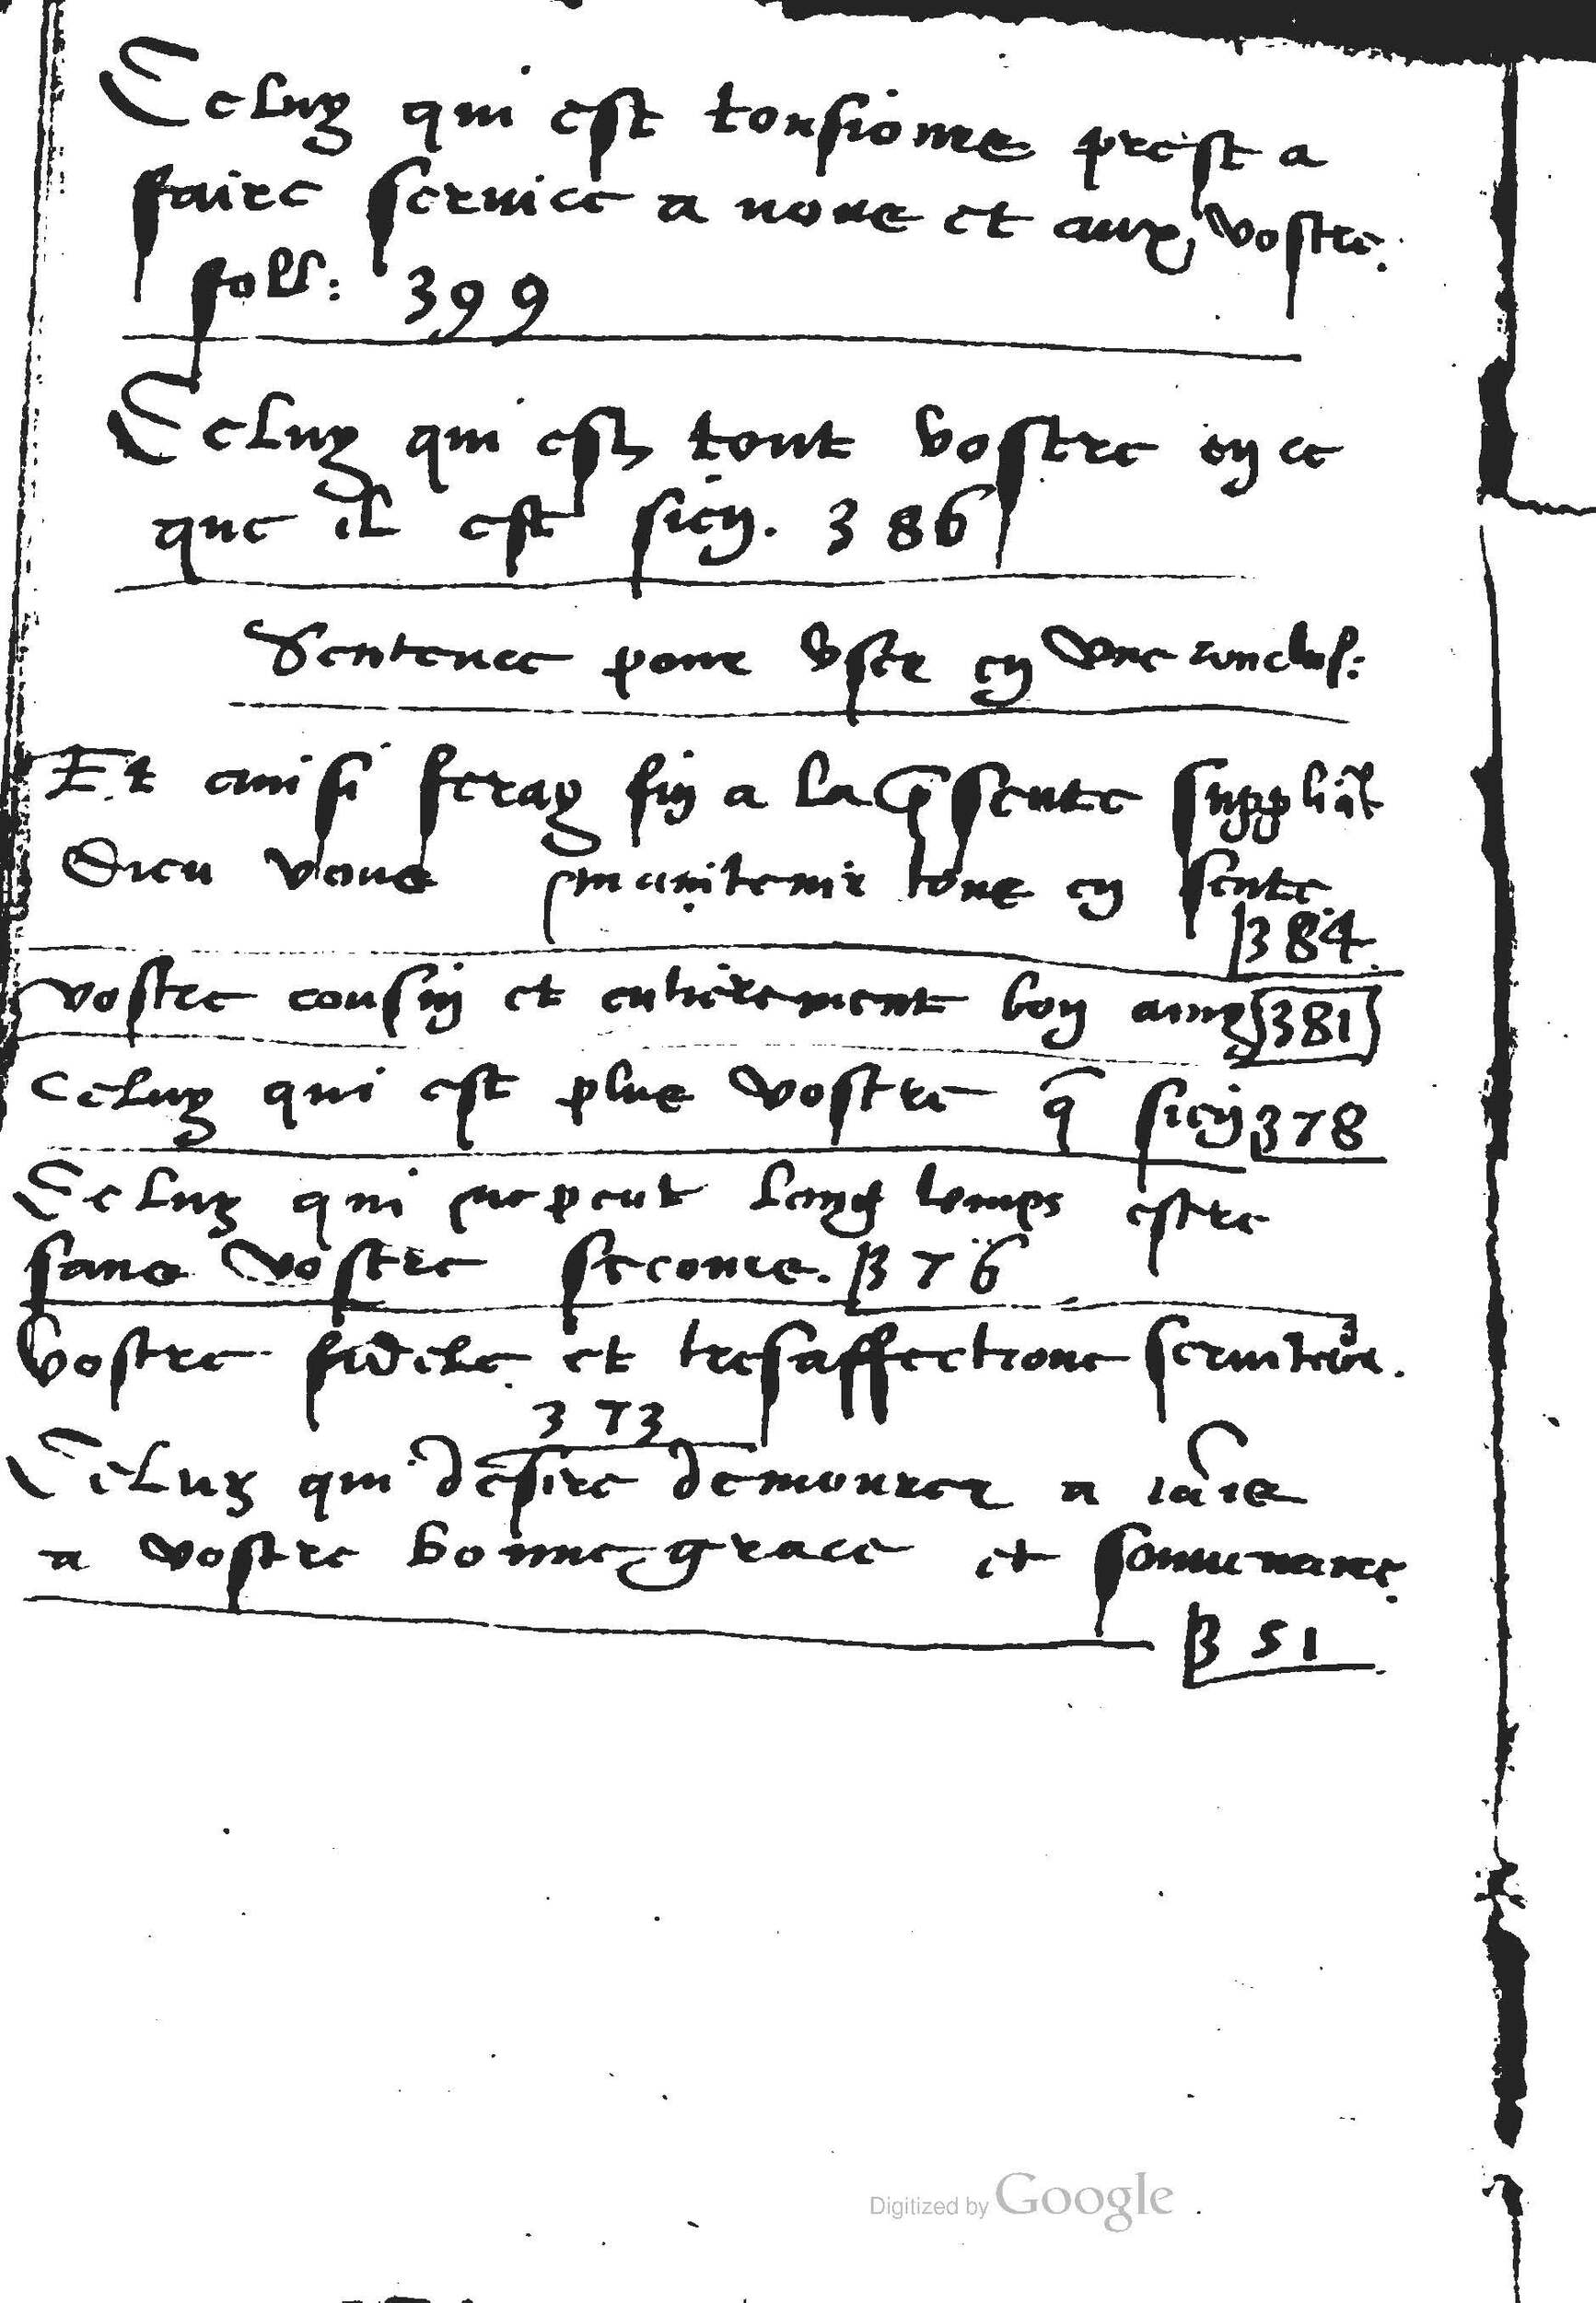 Celuy qui est tousiours prest a
faire seruice a vous et aux vostre.
foll: 399
Celuy qui est tout vostre en ce
que il est sien. 386
Sentence pour vser en vne conclus:
Et ainsi feray fin a la p̄sente suppliāt
Dieu vous maintenir tous en sente
384.
vostre cousin et entierement bon amy 381
Celuy qui est plus vostre q̄ sien 378
Celuy qui ne peut long temps estre
sans vostre secours. 376
vostre fidele et tresaffectione seruiteur.
373
Celuy qui desire demourer a iāis
a vostre bonne grace et souuenance.
351
Digitized by Google